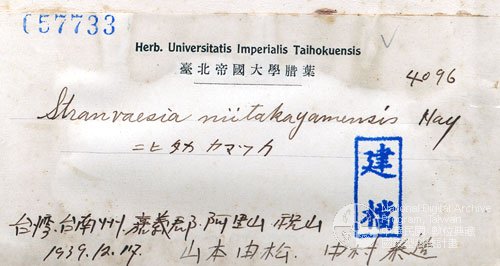 057733
Herb. Universitatis Imperialis Taihokuensis
臺北帝國大學腊葉
4096
Stranvaesia niitakayamensis Hay
ニヒタカ カマツカ
建檔
台湾, 台南州, 嘉義郡, 阿里山 祝山
1939. 12.
山本由松, 中村泰造
National Digital Archive
Program, Taiwan